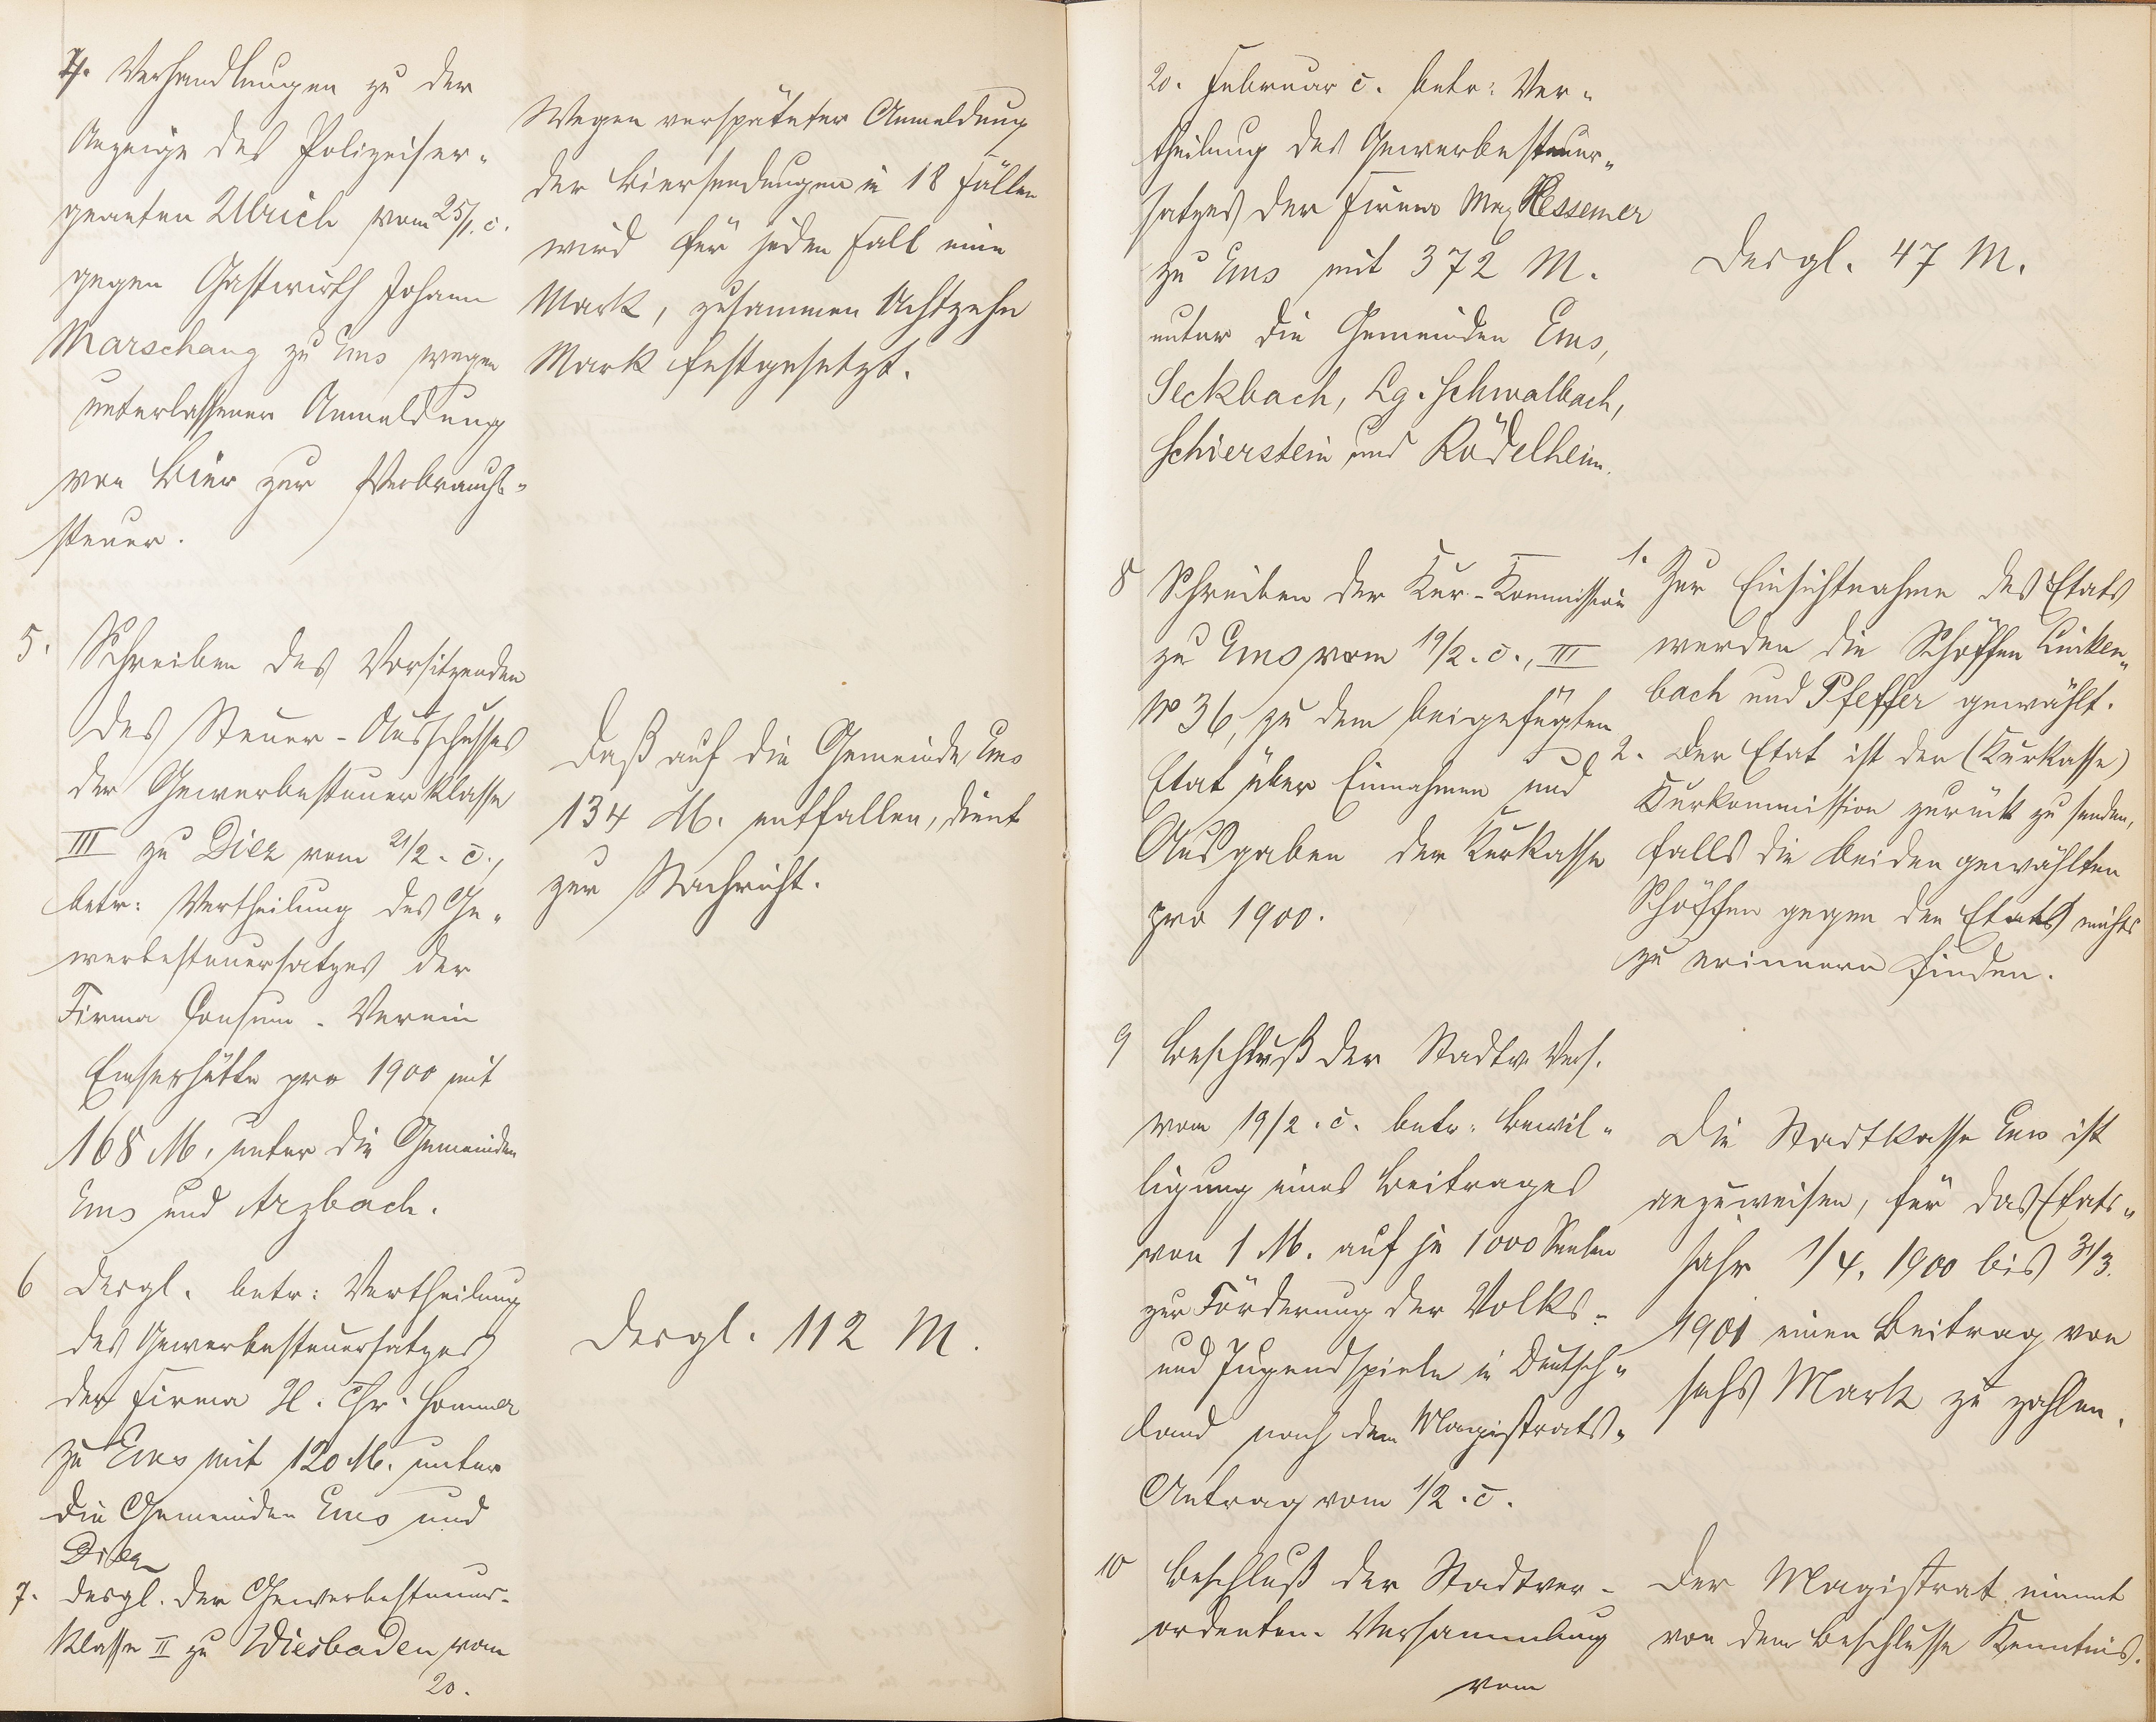 4. Verhandlungen zu der
Anzeige des Polizeiser-
geanten Ulrich vom 25/1. c.
gegen Gastwirth Johann
Marschang zu Ems wegen
unterlassener Anmeldung
von Bier zur Verbrauchs-
steuer.
Wegen verspäteter Anmeldung
der Biersendungen in 18 Fällen
wird für jeden Fall eine
Mark, zusammen Achtzehn
Mark festgesetzt.
5. Schreiben des Vorsitzenden
des Steuer-Ausschusses
der Gewerbesteuerklasse
III zu Diez vom 21/2. c.,
betr: Vertheilung des Ge-
werbesteuersatzes der
Firma Consum-Verein
Emserhütte pro 1900 mit
168 M. unter die Gemeinden
Ems und Arzbach.
Daß auf die Gemeinde Ems
134 M. entfallen, dient
zur Nachricht.
6 Desgl. betr: Vertheilung
des Gewerbesteuersatzes
der Firma H. Chr. Sommer
zu Ems mit 120 M. unter
die Gemeinden Ems und
Diez
Desgl. 112 M.
7. Desgl. der Gewerbesteuer-
klasse II zu Wiesbaden vom
20.
20. Februar c. betr: Ver-
theilung des Gewerbesteuer-
satzes der Firma Max Ressemer
zu Ems mit 372 M.
unter die Gemeinden Ems,
Seckbach, Lg. Schwalbach,
Schierstein und Rödelheim.
Desgl. 47 M.
8 Schreiben der Kur-Kommission
zu Ems vom 19/2. c., III
No 36, zu dem beigefügten
Etat über Einnahmen und
Ausgaben der Kurkasse
pro 1900.
1. Zur Einsichtnahme des Etats
werden die Schöffen Linken-
bach und Pfeffer gewählt.
2. Der Etat ist der (Kurkasse)
Kurkommission zurück zu senden,
falls die beiden gewählten
Schöffen gegen den Etats nichts
zu erinnern finden.
9 Beschluß der Stadtv. Vers.
vom 19/2. c. betr: Bewil-
ligung eines Beitrages
von 1 M. auf je 1000 Seelen
zur Förderung der Volks-
und Jugendspiele in Deutsch-
land nach dem Magistrats-
Antrag vom 1/2. c.
Die Stadtkasse Ems ist
anzuweisen, für das Etats-
jahr 1/4. 1900 bis 31/3.
1901 einen Beitrag von
sechs Mark zu zahlen.
10 Beschluß der Stadtver-
ordneten-Versammlung
vom
Der Magistrat nimmt
von dem Beschlusse Kenntnis.